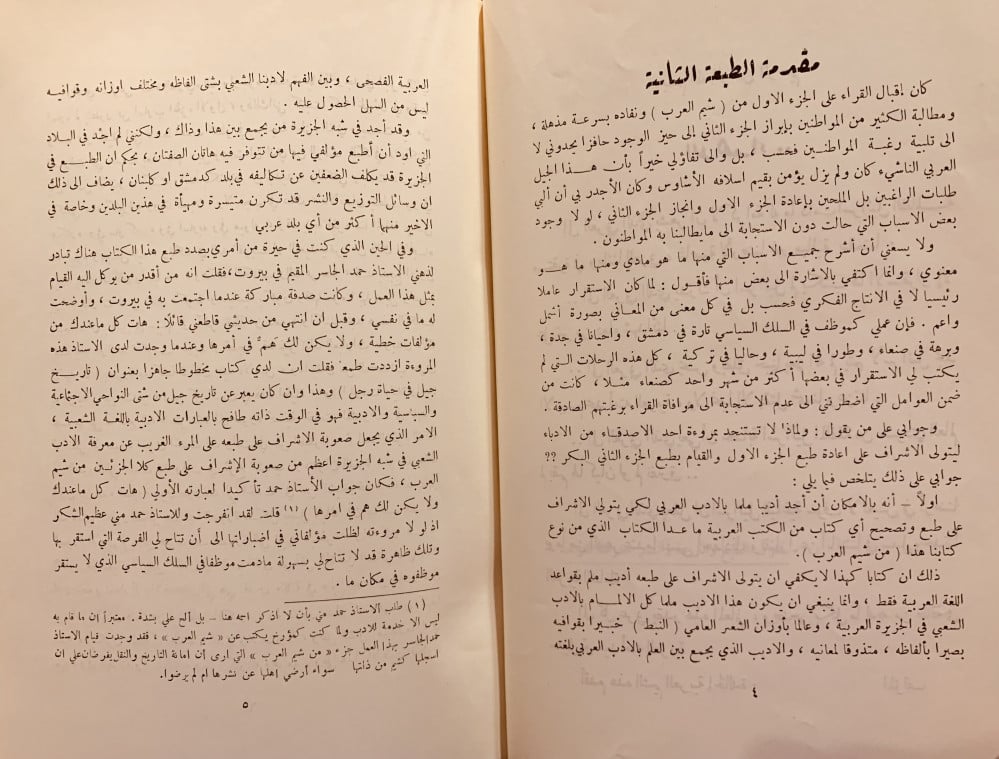 مقدمة الطبعة الثانية
كان إقبال القراء على الجزء الاول من ( شيم العرب ) ونفاده بسرعة مذهلة ،
ومطالبة الكثير من المواطنين بإبراز الجزء الثاني إلى حيز الوجود حافزا يحدوني لا
الى تلبية رغبة المواطنين فحسب ، بل والى تفاؤلي خيراً بأن هذا الجيل
العربي الناشيء كان ولم يزل يؤمن بقيم اسلافه الأشاوس وكان الأجدر بي أن ألبي
طلبات الراغبين بل الملحين بإعادة الجزء الاول وانجاز الجزء الثاني ، لو لا وجود
بعض الاسباب التي حالت دون الاستجابة الى مايطالبنا به المواطنون .
ولا يسعني أن أشرح جميع الاسباب التي منها ما هو مادي ومنها ما هو
معنوي ، وانما اكتفي بالاشارة الى بعض منها فأقول : لما كان الاستقرار عاملا
رئيسيا لا في الانتاج الفكري فحسب بل في كل معنى من المعاني بصورة أشمل
واعم . فإن عملي كموظف في السلك السياسي تارة في دمشق ، واحيانا في جدة ،
وبرهة في صنعاء ، وطورا في ليبية ، وحاليا في تركية ، كل هذه الرحلات التي لم
يكتب لي الاستقرار في بعضها أكثر من شهر واحد كصنعاء مثلا ، كانت من
ضمن العوامل التي اضطرتني الى عدم الاستجابة الى موافاة القراء برغبتهم الصادقة .
وجوابي على من يقول : ولماذا لا تستنجد بمروءة احد الاصدقاء من الادباء
ليتولى الاشراف على اعادة طبع الجزء الاول والقيام بطبع الجزء الثاني البكر ؟؟
جوابي على ذلك يتلخص فيما يلي :
اولاً – أنه بالامكان أن أجد أديبا ملما بالادب العربي لكي يتولى الاشراف
على طبع وتصحيح أي كتاب من الكتب العربية ما عدا الكتاب الذي من نوع
كتابنا هذا ( من شيم العرب ) .
ذلك ان كتابا كهذا لايكفي ان يتولى الاشراف على طبعه أديب ملم بقواعد
اللغة العربية فقط ، وانما ينبغي ان يكون هذا الاديب ملما كل الالمام بالادب
الشعبي في الجزيرة العربية ، وعالما بأوزان الشعر العامي ( النبط ) خبيرا بقوافيه
بصيرا بألفاظه ، متذوقا لمعانيه ، والاديب الذي يجمع بين العلم بالادب العربي بلغته
٤
العربية الفصحى ، وبين الفهم لادبنا الشعبي بشتى الفاظه ومختلف اوزانه وقوافيه
ليس من السهل الحصول عليه .
وقد أجد في شبه الجزيرة من يجمع بين هذا وذاك ، ولكنني لم اجد في البلاد
التي اود أن أطبع مؤلفي فيها من تتوفر فيه هاتان الصفتان ، بحكم ان الطبع في
الجزيرة قد يكلف الضعفين عن تكاليفه في بلد كدمشق او كلبنان ، يضاف الى ذلك
ان وسائل التوزيع والنشر قد تكون متيسرة ومهيأة في هذين البلدين وخاصة في
الاخير منهما أكثر من أي بلد عربي
وفي الحين الذي كنت في حيرة من أمري بصدد طبع هذا الكتاب هناك تبادر
لذهني الاستاذ حمد الجاسر المقيم في بيروت ، فقلت انه من أقدر من يوكل اليه القيام
بمثل هذا العمل ، وكانت صدفة مباركة عندما اجتمعت به في بيروت ، وأوضحت
له ما في نفسي ، وقبل ان انتهي من حديثي قاطعني قائلًا : هات كل ماعندك من
مؤلفات خطية ، ولا يكن لك همّ في أمرها وعندما وجدت لدى الاستاذ هذه
المروءة ازددت طمعا فقلت ان لدي كتاب مخطوطا جاهزا بعنوان ( تاريخ
جيل في حياة رجل ) وهذا وان كان يعبر عن تاريخ جيل من شتى النواحي الاجتماعية
والسياسية والادبية فهو في الوقت ذاته طافح بالعبارات الادبية باللغة الشعبية ،
الامر الذي يجعل صعوبة الاشراف على طبعه على المرء الغريب عن معرفة الادب
الشعبي في شبه الجزيرة اعظم من صعوبة الإشراف على طبع كلا الجزئين من شيم
العرب ، فكان جواب الأستاذ حمد تأكيدا لعبارته الأولي ( هات كل ماعندك
ولا يكن لك هم في امرها ) (١) قلت لقد انفرجت وللاستاذ حمد مني عظيم الشكر
اذ لو لا مروءته لظلت مؤلفاتي في اضباراتها الى أن تتاح لي الفرصة التي استقر بها
وتلك ظاهرة قد لا تتاح لي بسهولة مادمت موظفا في السلك السياسي الذي لا يستقر
موظفوه في مكان ما .
(١) طلب الاستاذ حمد مني بأن لا اذكر اسمه هنا – بل ألح علي بشدة . معتبراً إن ما قام به
ليس الا خدمة للادب ولما كنت كمؤرخ يكتب عن « شيم العرب » ، فقد وجدت قيام الاستاذ
حمد الجاسر بهذا العمل جزء « من شيم العرب » التي ارى أن امانة التاريخ والنقل يفرضان علي ان
اسجلها كشيم من ذاتها سواء أرضي أهلها عن نشرها ام لم يرضوا .
٥